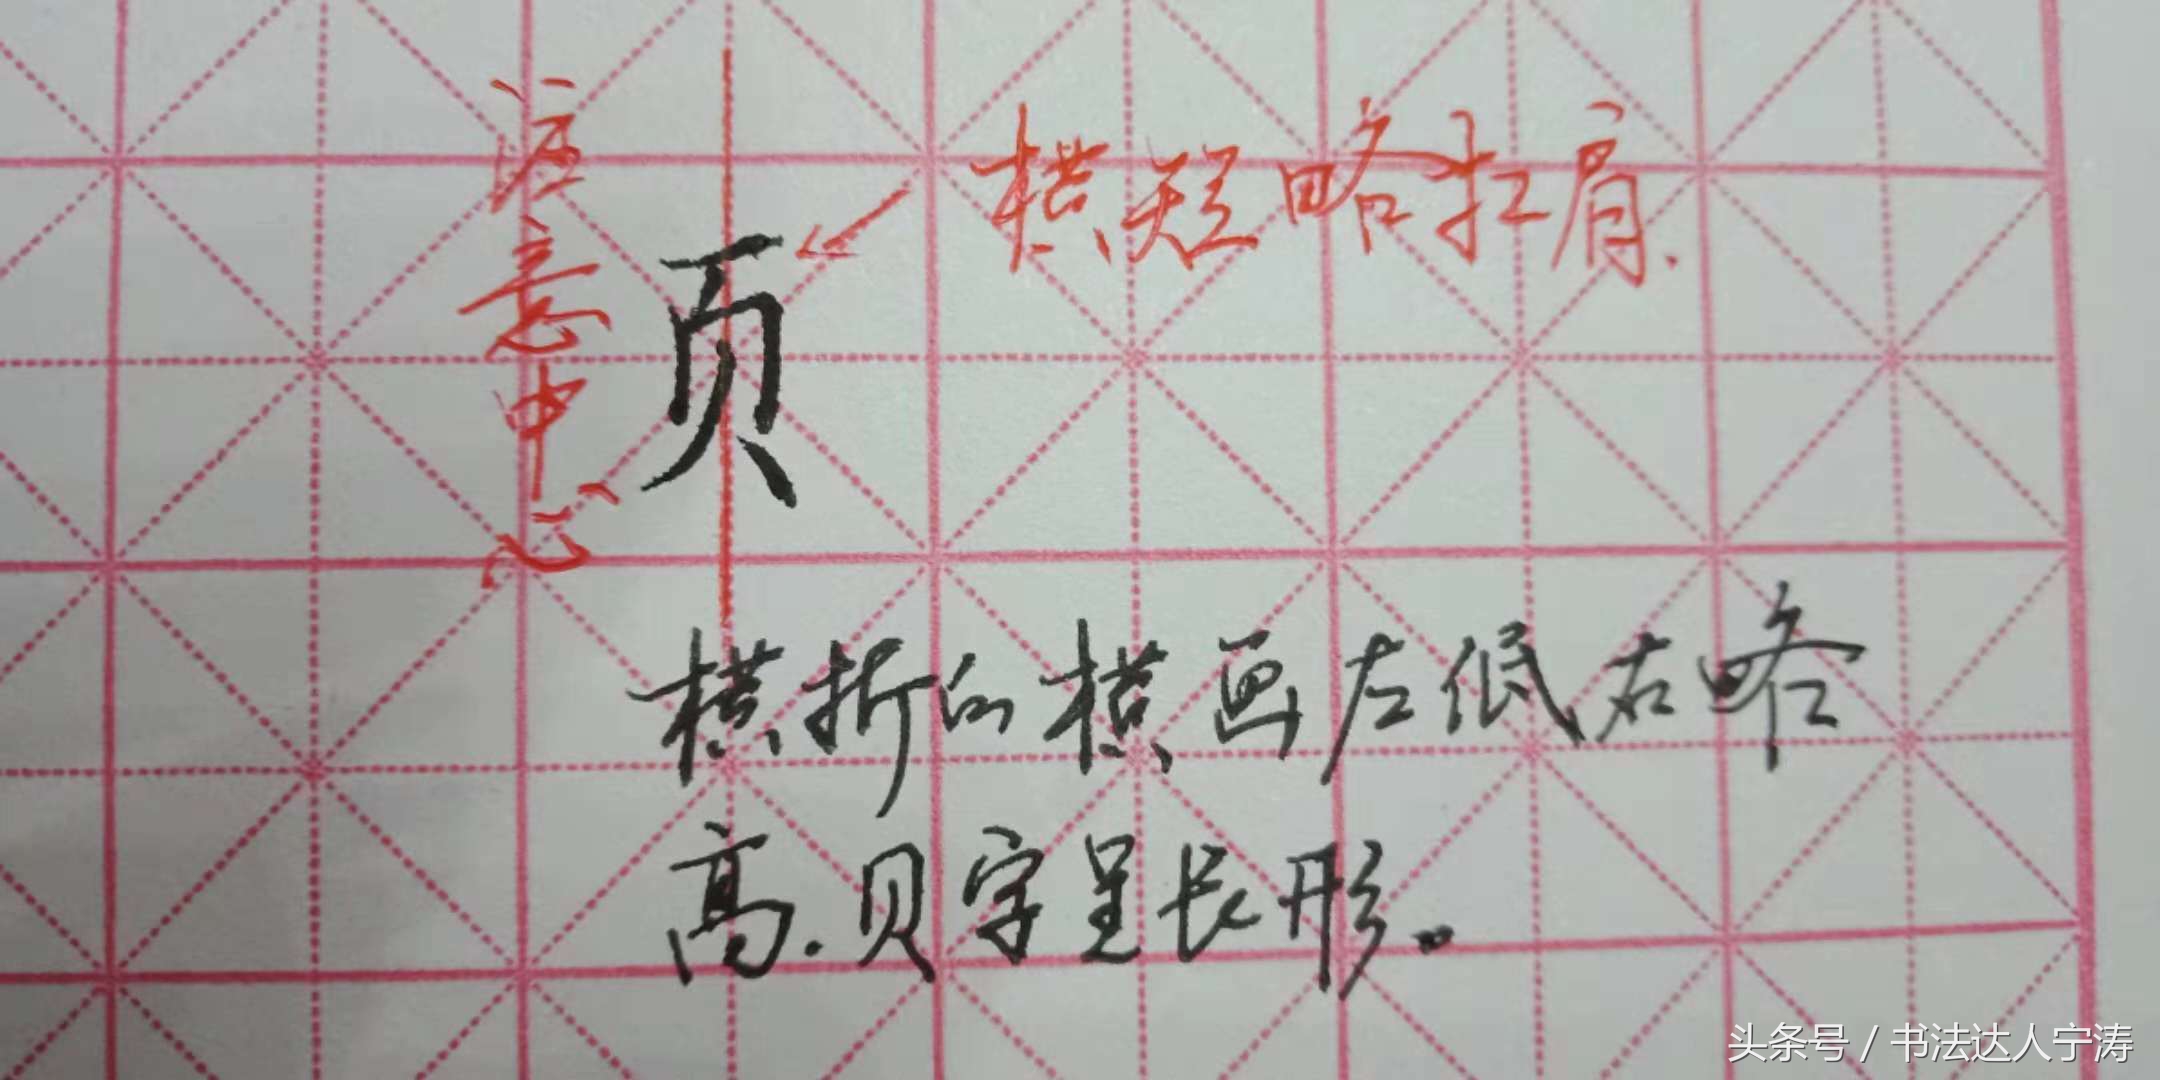 注意中心
页
横短略扛肩.
横折的横画左低右略
高.贝字呈长形。
头条号 / 书法达人宁涛